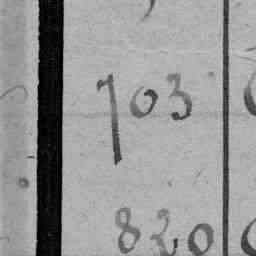 703
820